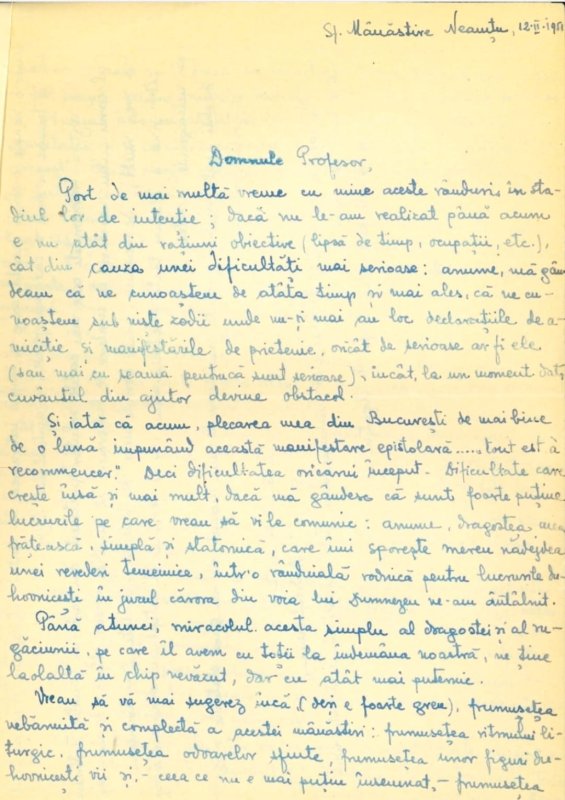 Sf. Mânăstire Neamțu, 12-II-1951
Domnule Profesor,
Port de mai multă vreme cu mine aceste rânduri, în sta-
diul lor de intenție; dacă nu le-am realizat până acum
e nu atât din rațiuni obiective (lipsă de timp, ocupații, etc.),
cât din cauza unei dificultăți mai serioase: anume, mă gân
deam că ne cunoaștem de atâta timp și mai ales, că ne cu-
noaștem sub niște zodii unde nu-și mai au loc declarațiile de a-
miciție și manifestările de prietenie, oricât de serioase ar fi ele
(sau mai cu seamă pentrucă sunt serioase), încât, la un moment dat,
cuvântul din ajutor devine obstacol.
Și iată că acum, plecarea mea din București de mai bine
de o lună impunând această manifestare epistolară..... "tout est à
recommencer." Deci dificultatea oricărui început. Dificultate care
crește însă și mai mult, dacă mă gândesc că sunt foarte puține
lucrurile pe care vreau să vi le comunic: anume, dragostea mea
frățească, simplă și statornică, care îmi sporește mereu nădejdea
unei revederi temeinice, într'o rânduială rodnică pentru lucrurile du-
hovnicești în jurul cărora din voia lui Dumnezeu ne-am întâlnit.
Până atunci, miracolul acesta simplu al dragostei și al ru-
găciunii, pe care îl avem cu toții la îndemâna noastră, ne ține
laolaltă în chip nevăzut, dar cu atât mai puternic.
Vreau să vă mai sugerez încă, (deși e foarte greu), frumusețea
nebănuită și complectă a acestei mânăstiri: frumusețea ritmului li-
turgic, frumusețea odoarelor sfinte, frumusețea unor figuri du-
hovnicești vii și, - ceea ce nu e mai puțin însemnat, - frumusețea